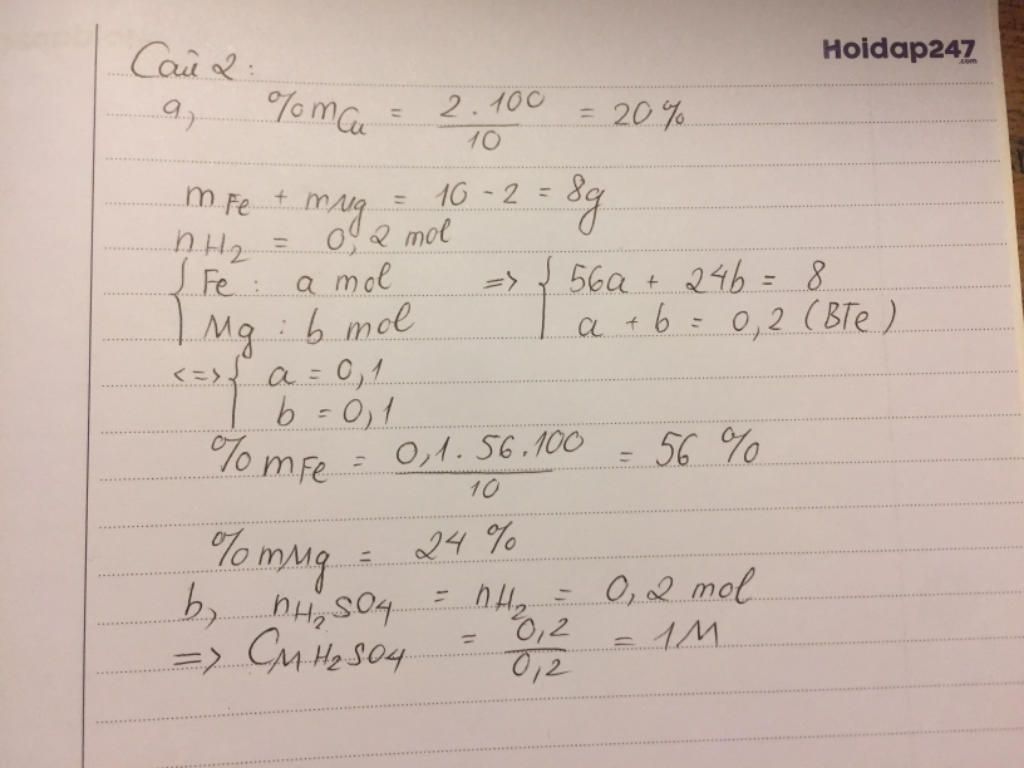 Hoidap247
.com
Câu 2:
a, %mCu = 2.100/10 = 20%
mFe + mMg = 10 - 2 = 8g
nH2 = 0,2 mol
{ Fe : a mol => { 56a + 24b = 8
Mg : b mol a + b = 0,2 (BTe)
<=> { a = 0,1
b = 0,1
%mFe = 0,1.56.100/10 = 56 %
%mMg = 24 %
b, nH2SO4 = nH2 = 0,2 mol
=> CM H2SO4 = 0,2/0,2 = 1M